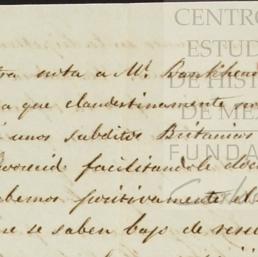 CENTRO
ESTUD
DE HIST
DE ME
FUNDA
tra nota a Mr. Bankhead
a que clandestinamente
unos subditos Britanicos
facilitandole
abemos positivamente el
ue se saben bajo de